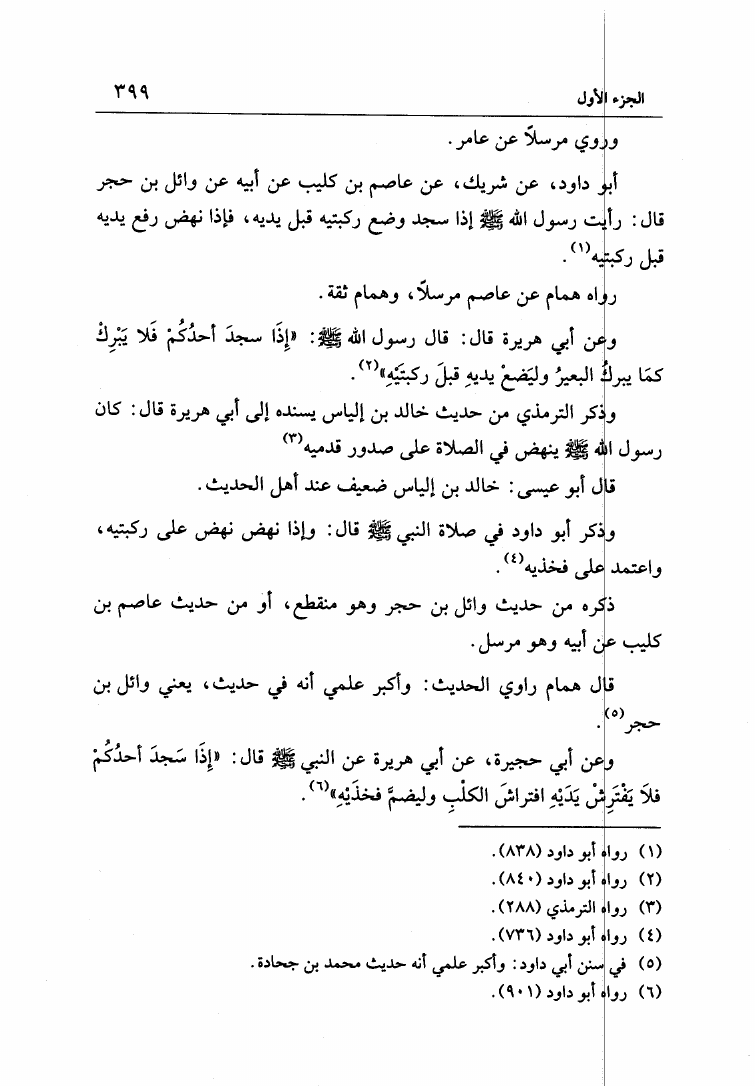 الجزء الأول ٣٩٩
وروي مرسلاً عن عامر.
أبو داود، عن شريك، عن عاصم بن كليب عن أبيه عن وائل بن حجر
قال: رأيت رسول الله ﷺ إذا سجد وضع ركبتيه قبل يديه، فإذا نهض رفع يديه
قبل ركبتيه(١).
رواه همام عن عاصم مرسلاً، وهمام ثقة.
وعن أبي هريرة قال: قال رسول الله ﷺ: «إِذَا سجدَ أحدُكُمْ فَلا يَبْرِكْ
كمَا يبركُ البعيرُ وليَضعْ يديهِ قبلَ ركبتَيْهِ»(٢).
وذكر الترمذي من حديث خالد بن إلياس يسنده إلى أبي هريرة قال: كان
رسول الله ﷺ ينهض في الصلاة على صدور قدميه(٣)
قال أبو عيسى: خالد بن إلياس ضعيف عند أهل الحديث.
وذكر أبو داود في صلاة النبي ﷺ قال: وإذا نهض نهض على ركبتيه،
واعتمد على فخذيه(٤).
ذكره من حديث وائل بن حجر وهو منقطع، أو من حديث عاصم بن
كليب عن أبيه وهو مرسل.
قال همام راوي الحديث: وأكبر علمي أنه في حديث، يعني وائل بن
حجر(٥).
وعن أبي حجيرة، عن أبي هريرة عن النبي ﷺ قال: «إِذَا سَجدَ أحدُكُمْ
فلاَ يَفْتَرِشْ يَدَيْهِ افتراشَ الكلْبِ وليضمَّ فخذَيْهِ»(٦).
(١) رواه أبو داود (٨٣٨).
(٢) رواه أبو داود (٨٤٠).
(٣) رواه الترمذي (٢٨٨).
(٤) رواه أبو داود (٧٣٦).
(٥) في سنن أبي داود: وأكبر علمي أنه حديث محمد بن جحادة.
(٦) رواه أبو داود (٩٠١).